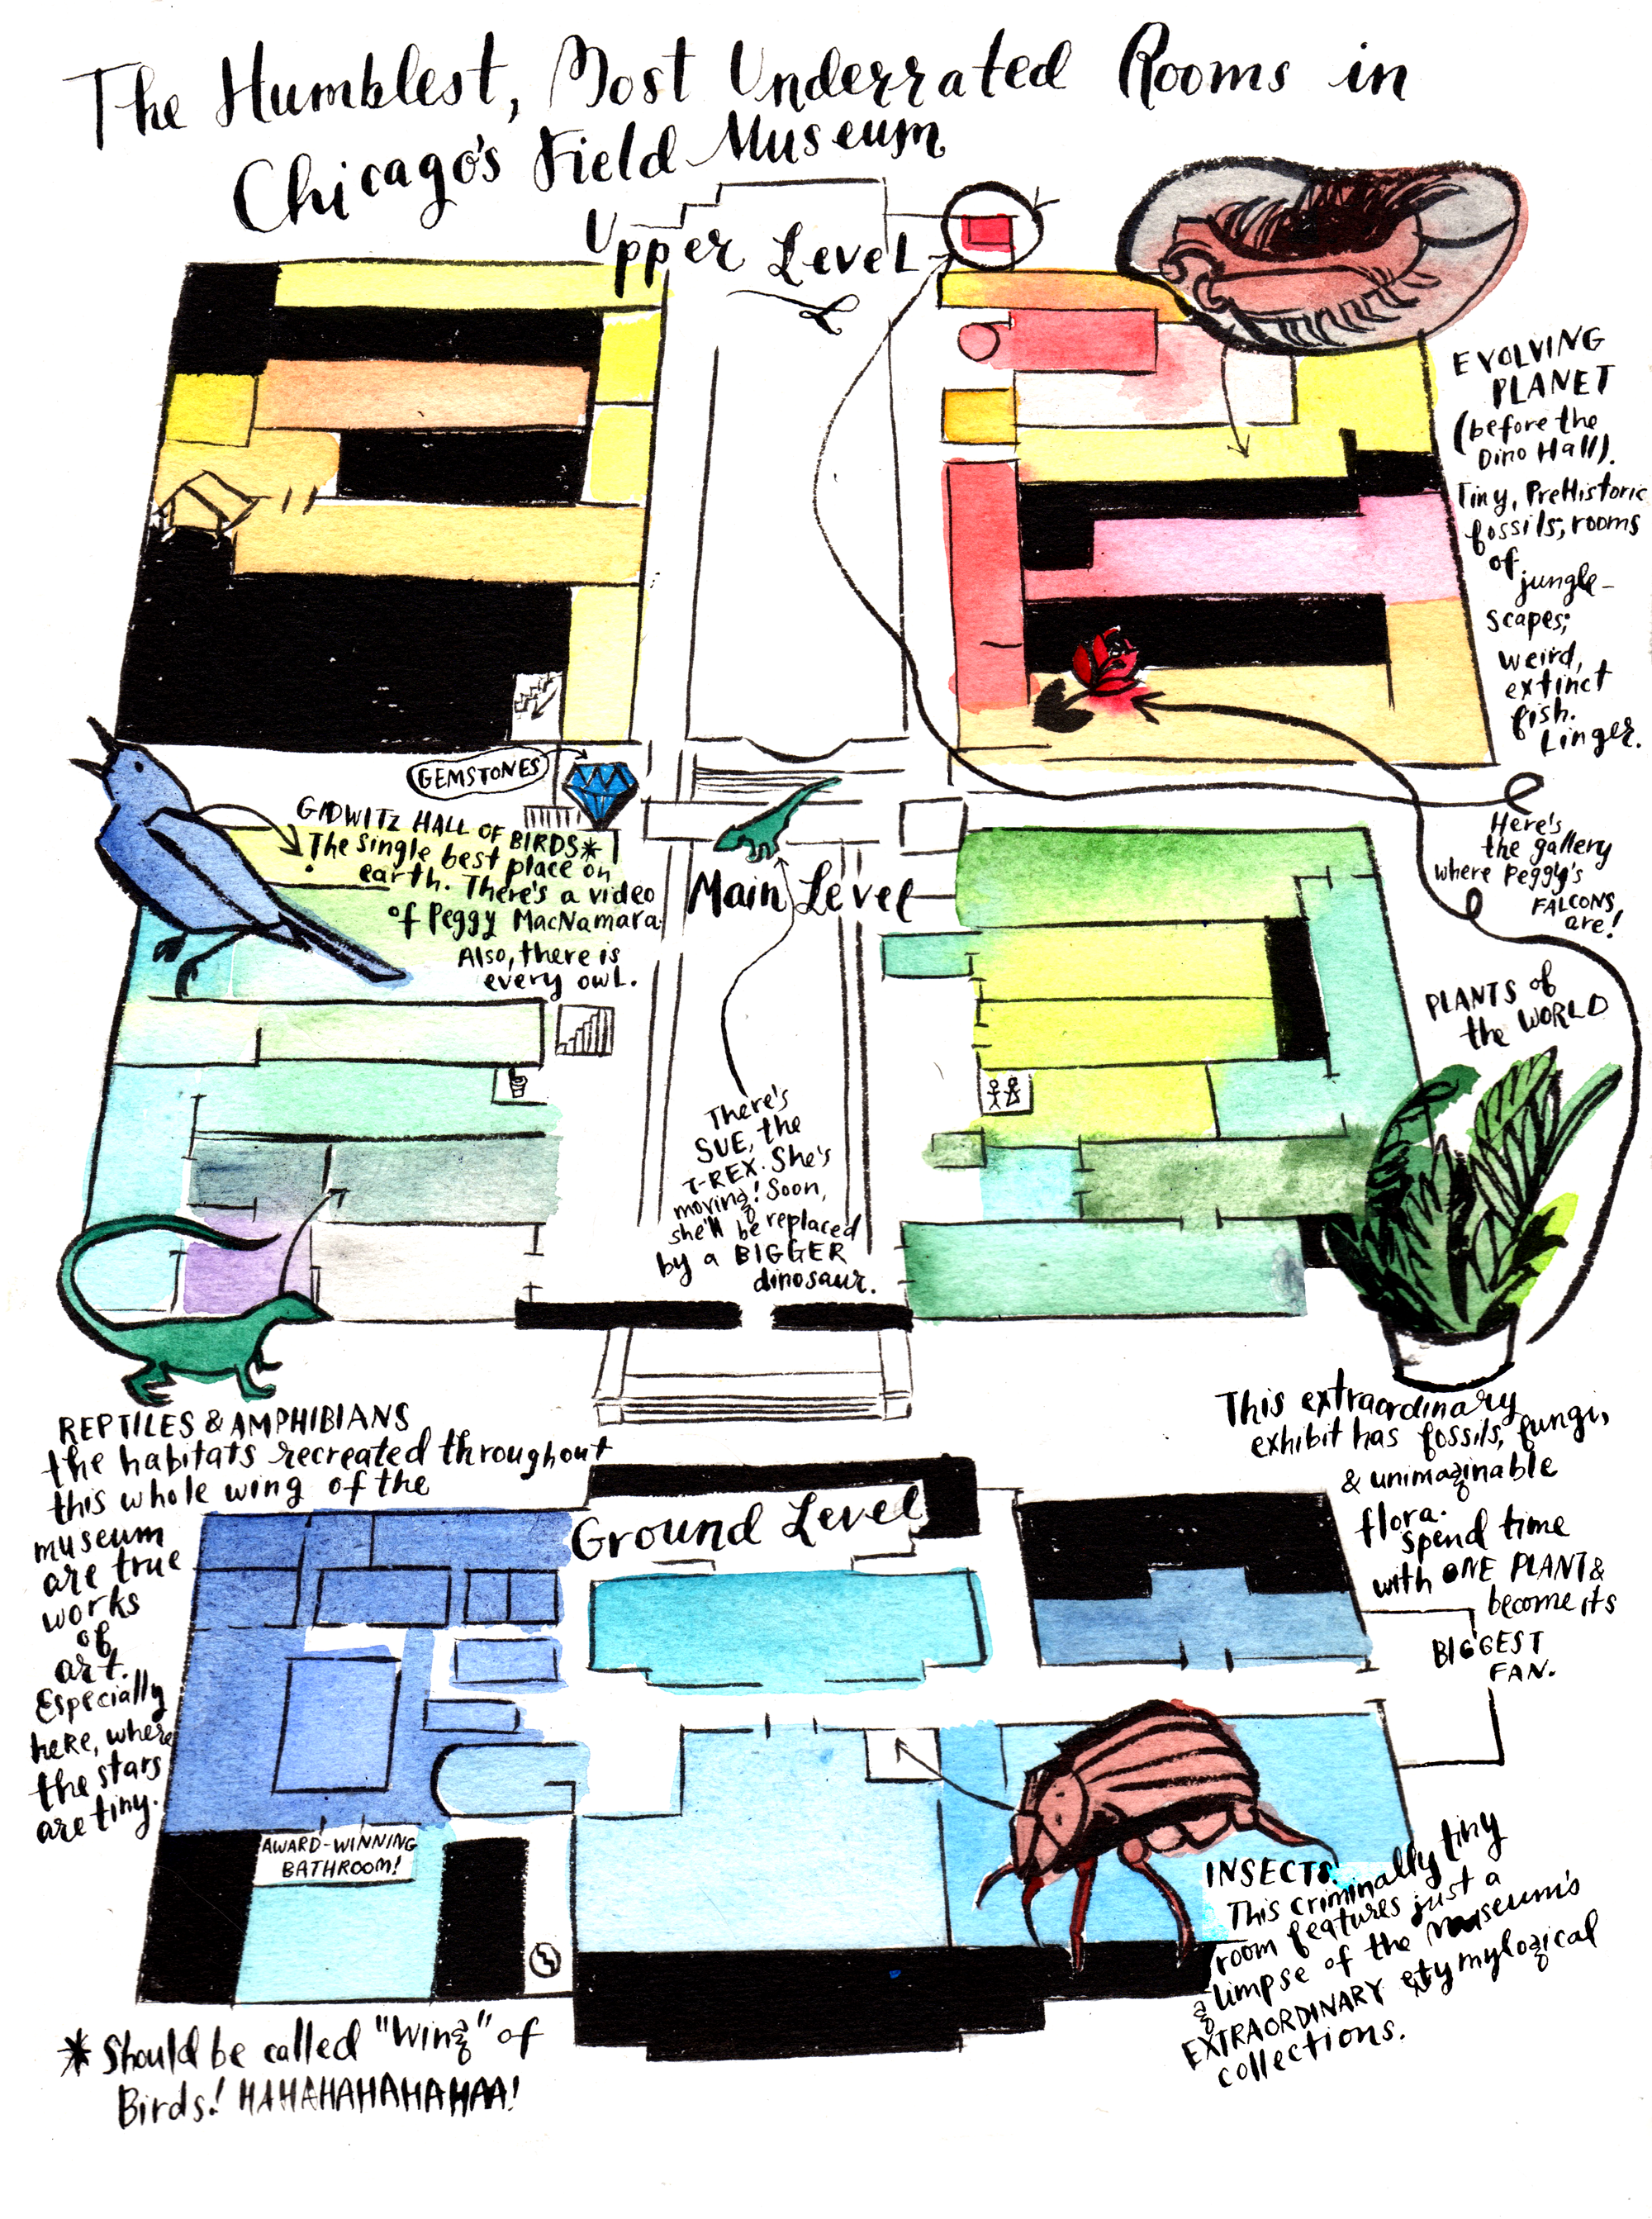 The Humblest, Most Underrated Rooms in
Chicago's Field Museum
Upper Level
EVOLVING
PLANET
(before the
Dino Hall).
Tiny, PreHistoric
fossils; rooms
of
jungle-
scapes;
weird,
extinct
fish.
Linger.
GEMSTONES
GIDWITZ HALL OF BIRDS*
The single best place on
earth. There's a video
of Peggy MacNamara.
Also, there is
every owl.
Here's
the gallery
where Peggy's
FALCONS
are!
Main Level
PLANTS of
the WORLD
There's
SUE, the
T-REX. She's
moving! Soon,
she'll be replaced
by a BIGGER
dinosaur.
This extraordinary
exhibit has fossils, fungi,
& unimaginable
flora.
spend time
with ONE PLANT &
become its
BIGGEST
FAN.
REPTILES & AMPHIBIANS
the habitats recreated throughout
this whole wing of the
museum
are true
works
of
art.
Especially
here, where
the stars
are tiny.
Ground Level
AWARD-WINNING
BATHROOM!
INSECTS
This criminally tiny
room features just a
glimpse of the museum's
EXTRAORDINARY etymylogical
collections.
* Should be called "Wing" of
Birds! HAHAHAHAHAHAA!